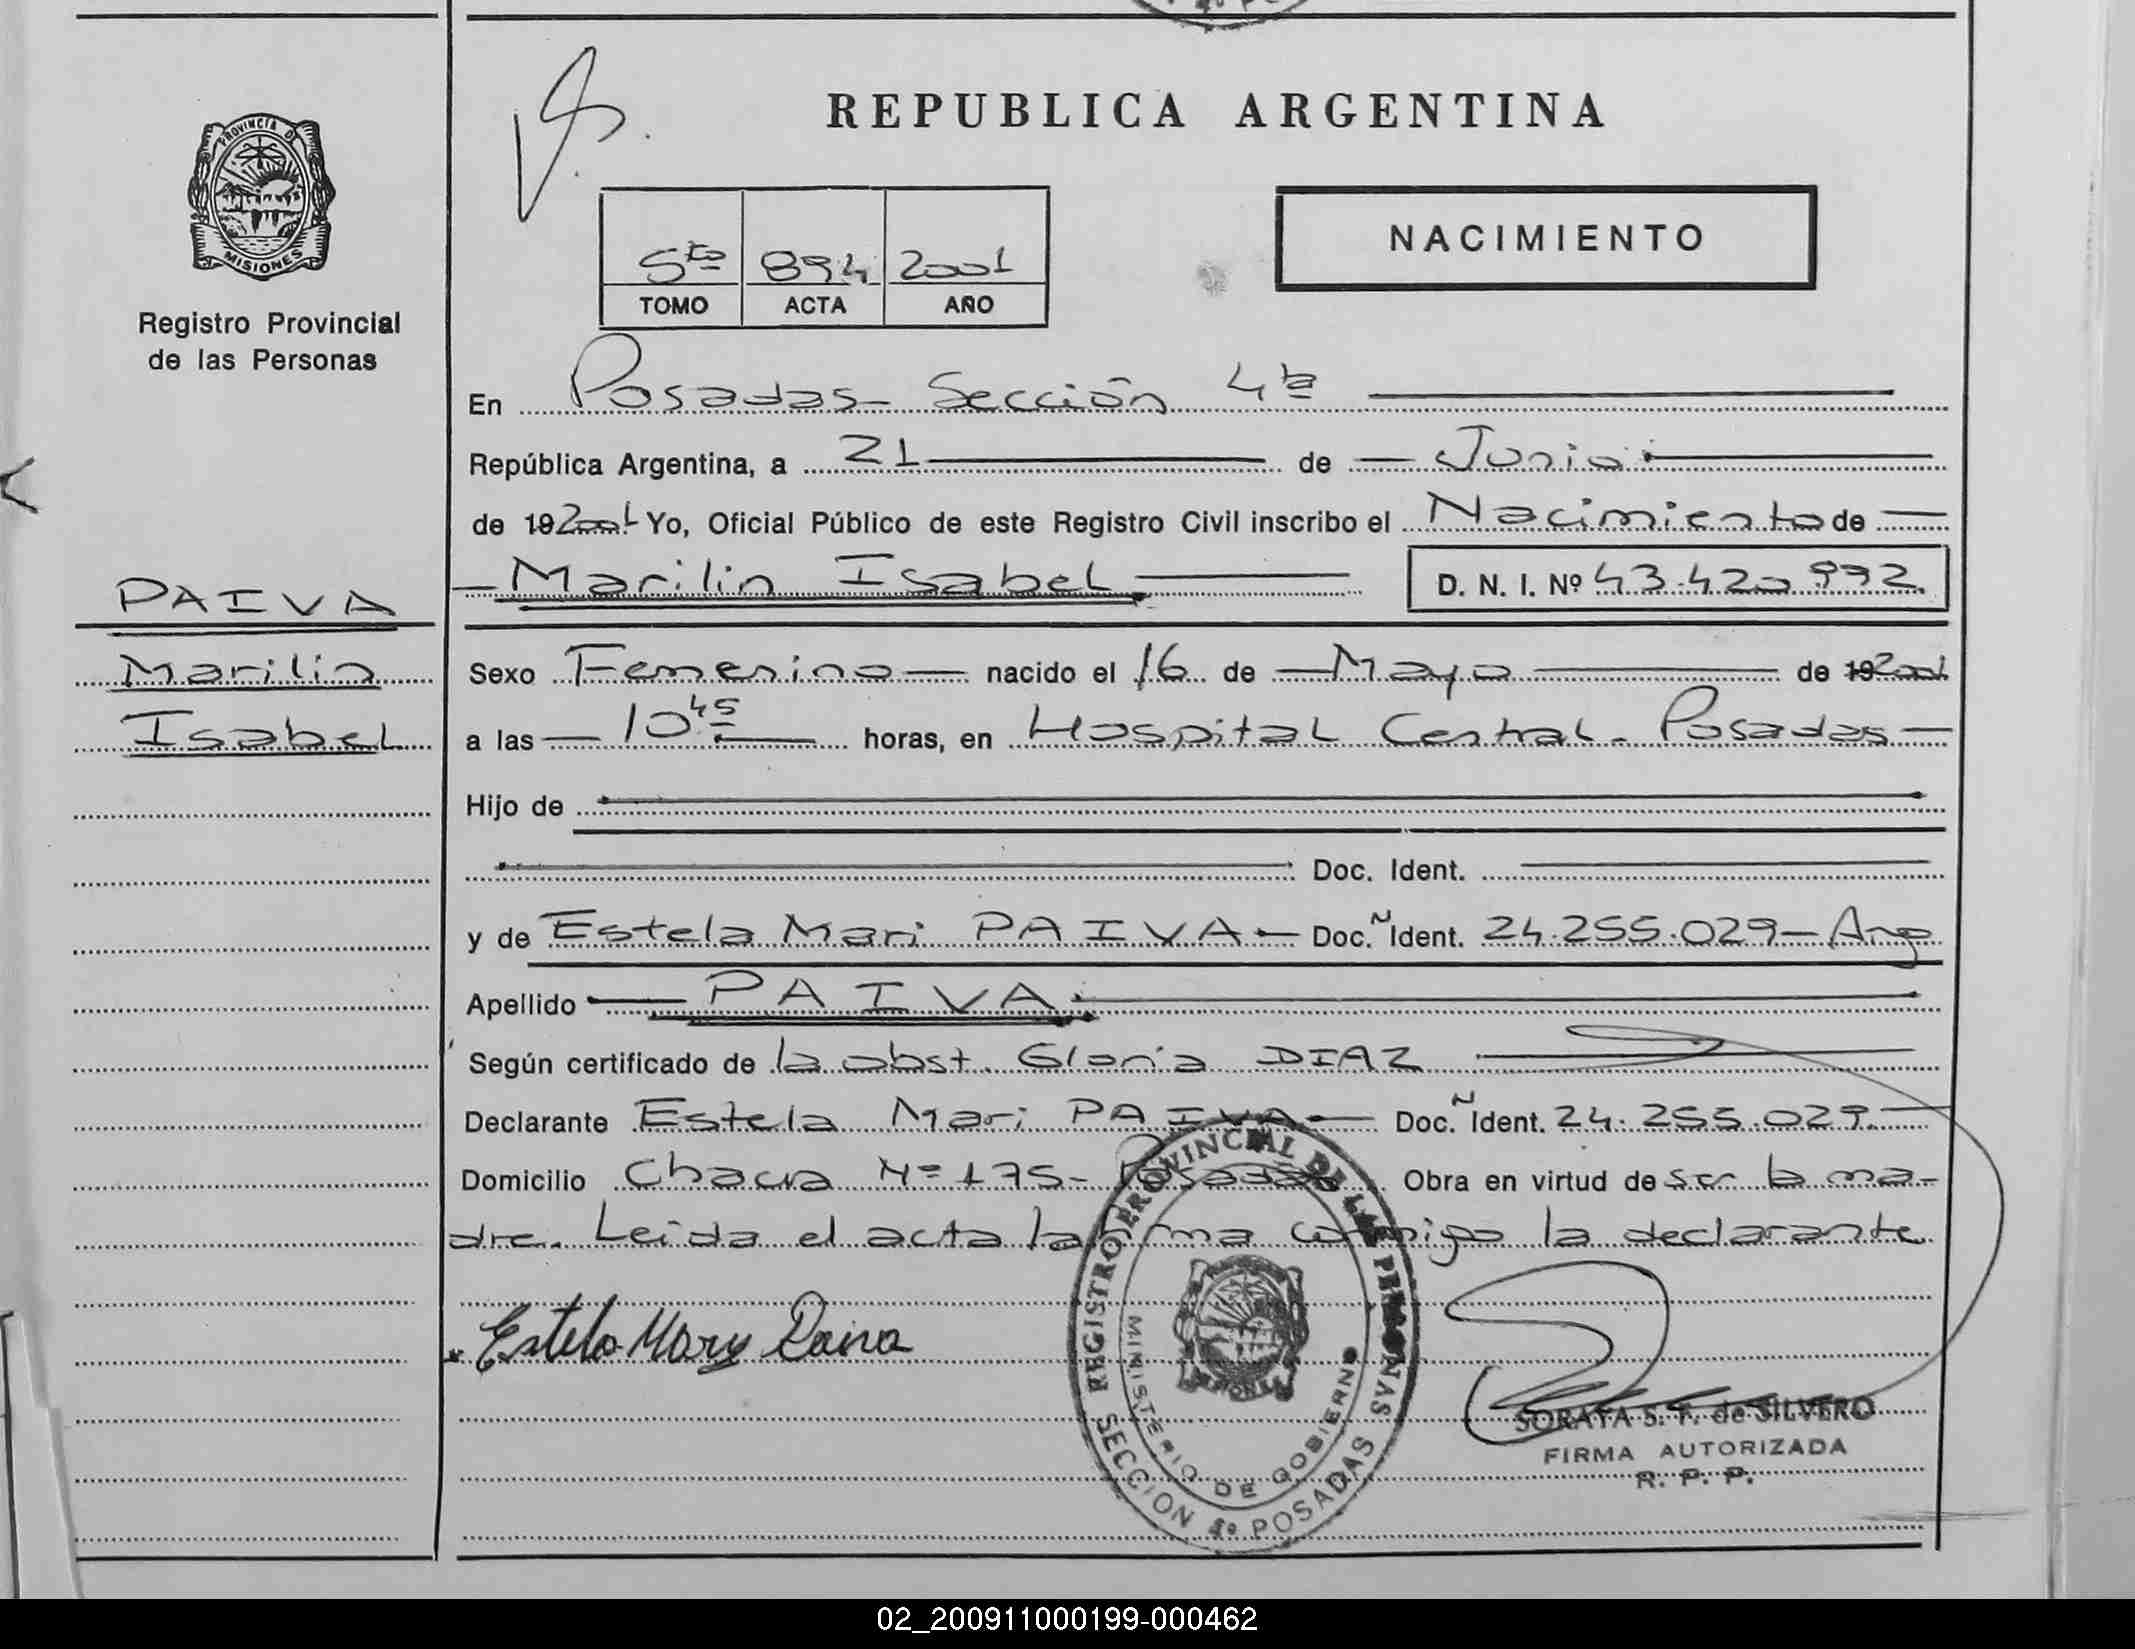 REPUBLICA ARGENTINA
PROVINCIA D
MISIONES
Registro Provincial
de las Personas
5to 894 2001
TOMO ACTA AÑO
NACIMIENTO
En Posadas - Sección 4ta
República Argentina, a 21 de Junio
de 19 2001 Yo, Oficial Público de este Registro Civil inscribo el Nacimiento de
Marilin Isabel D. N. I. Nº 43.420.992
PAIVA
Marilin
Isabel
Sexo Femenino nacido el 16 de Mayo de 19 2001
a las 10 45 horas, en Hospital Central - Posadas
Hijo de
Doc. Ident.
y de Estela Mari PAIVA Doc. N Ident. 24.255.029 - Arg
Apellido PAIVA
Según certificado de la obst. Gloria DIAZ
Declarante Estela Mari PAIVA Doc. N Ident. 24.255.029
Domicilio Chacra Nº 175 - Posadas Obra en virtud de ser la ma-
dre. Leida el acta la firma conmigo la declarante
Estela Mary Paiva
REGISTRO PROVINCIAL DE LAS PERSONAS
MINISTERIO DE GOBIERNO
SECCION 4º POSADAS
SORAYA S. F. de SILVERO
FIRMA AUTORIZADA
R. P. P.
02_200911000199-000462